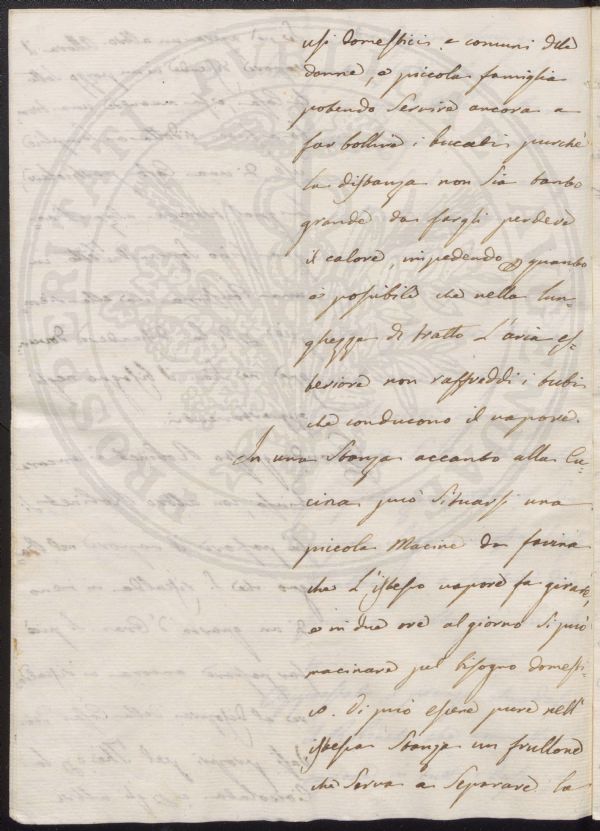 usi domestici e comuni delle
donne, e piccola famiglia
potendo servire ancora a
far bollire i bucati purché
la distanza non sia tanto
grande da fargli perdere
il calore, impedendo quanto
è possibile che nella lun-
ghezza di tratto l'aria es-
teriore non raffreddi i tubi
che conducono il vapore.
In una stanza accanto alla Cu-
cina può situarsi una
piccola Macine da farina
che l'istesso vapore fa girare,
e in due ore al giorno si può
macinare pel bisogno domesti-
co. Vi può essere pure nell'
istessa stanza un frullone
che serva a separare la